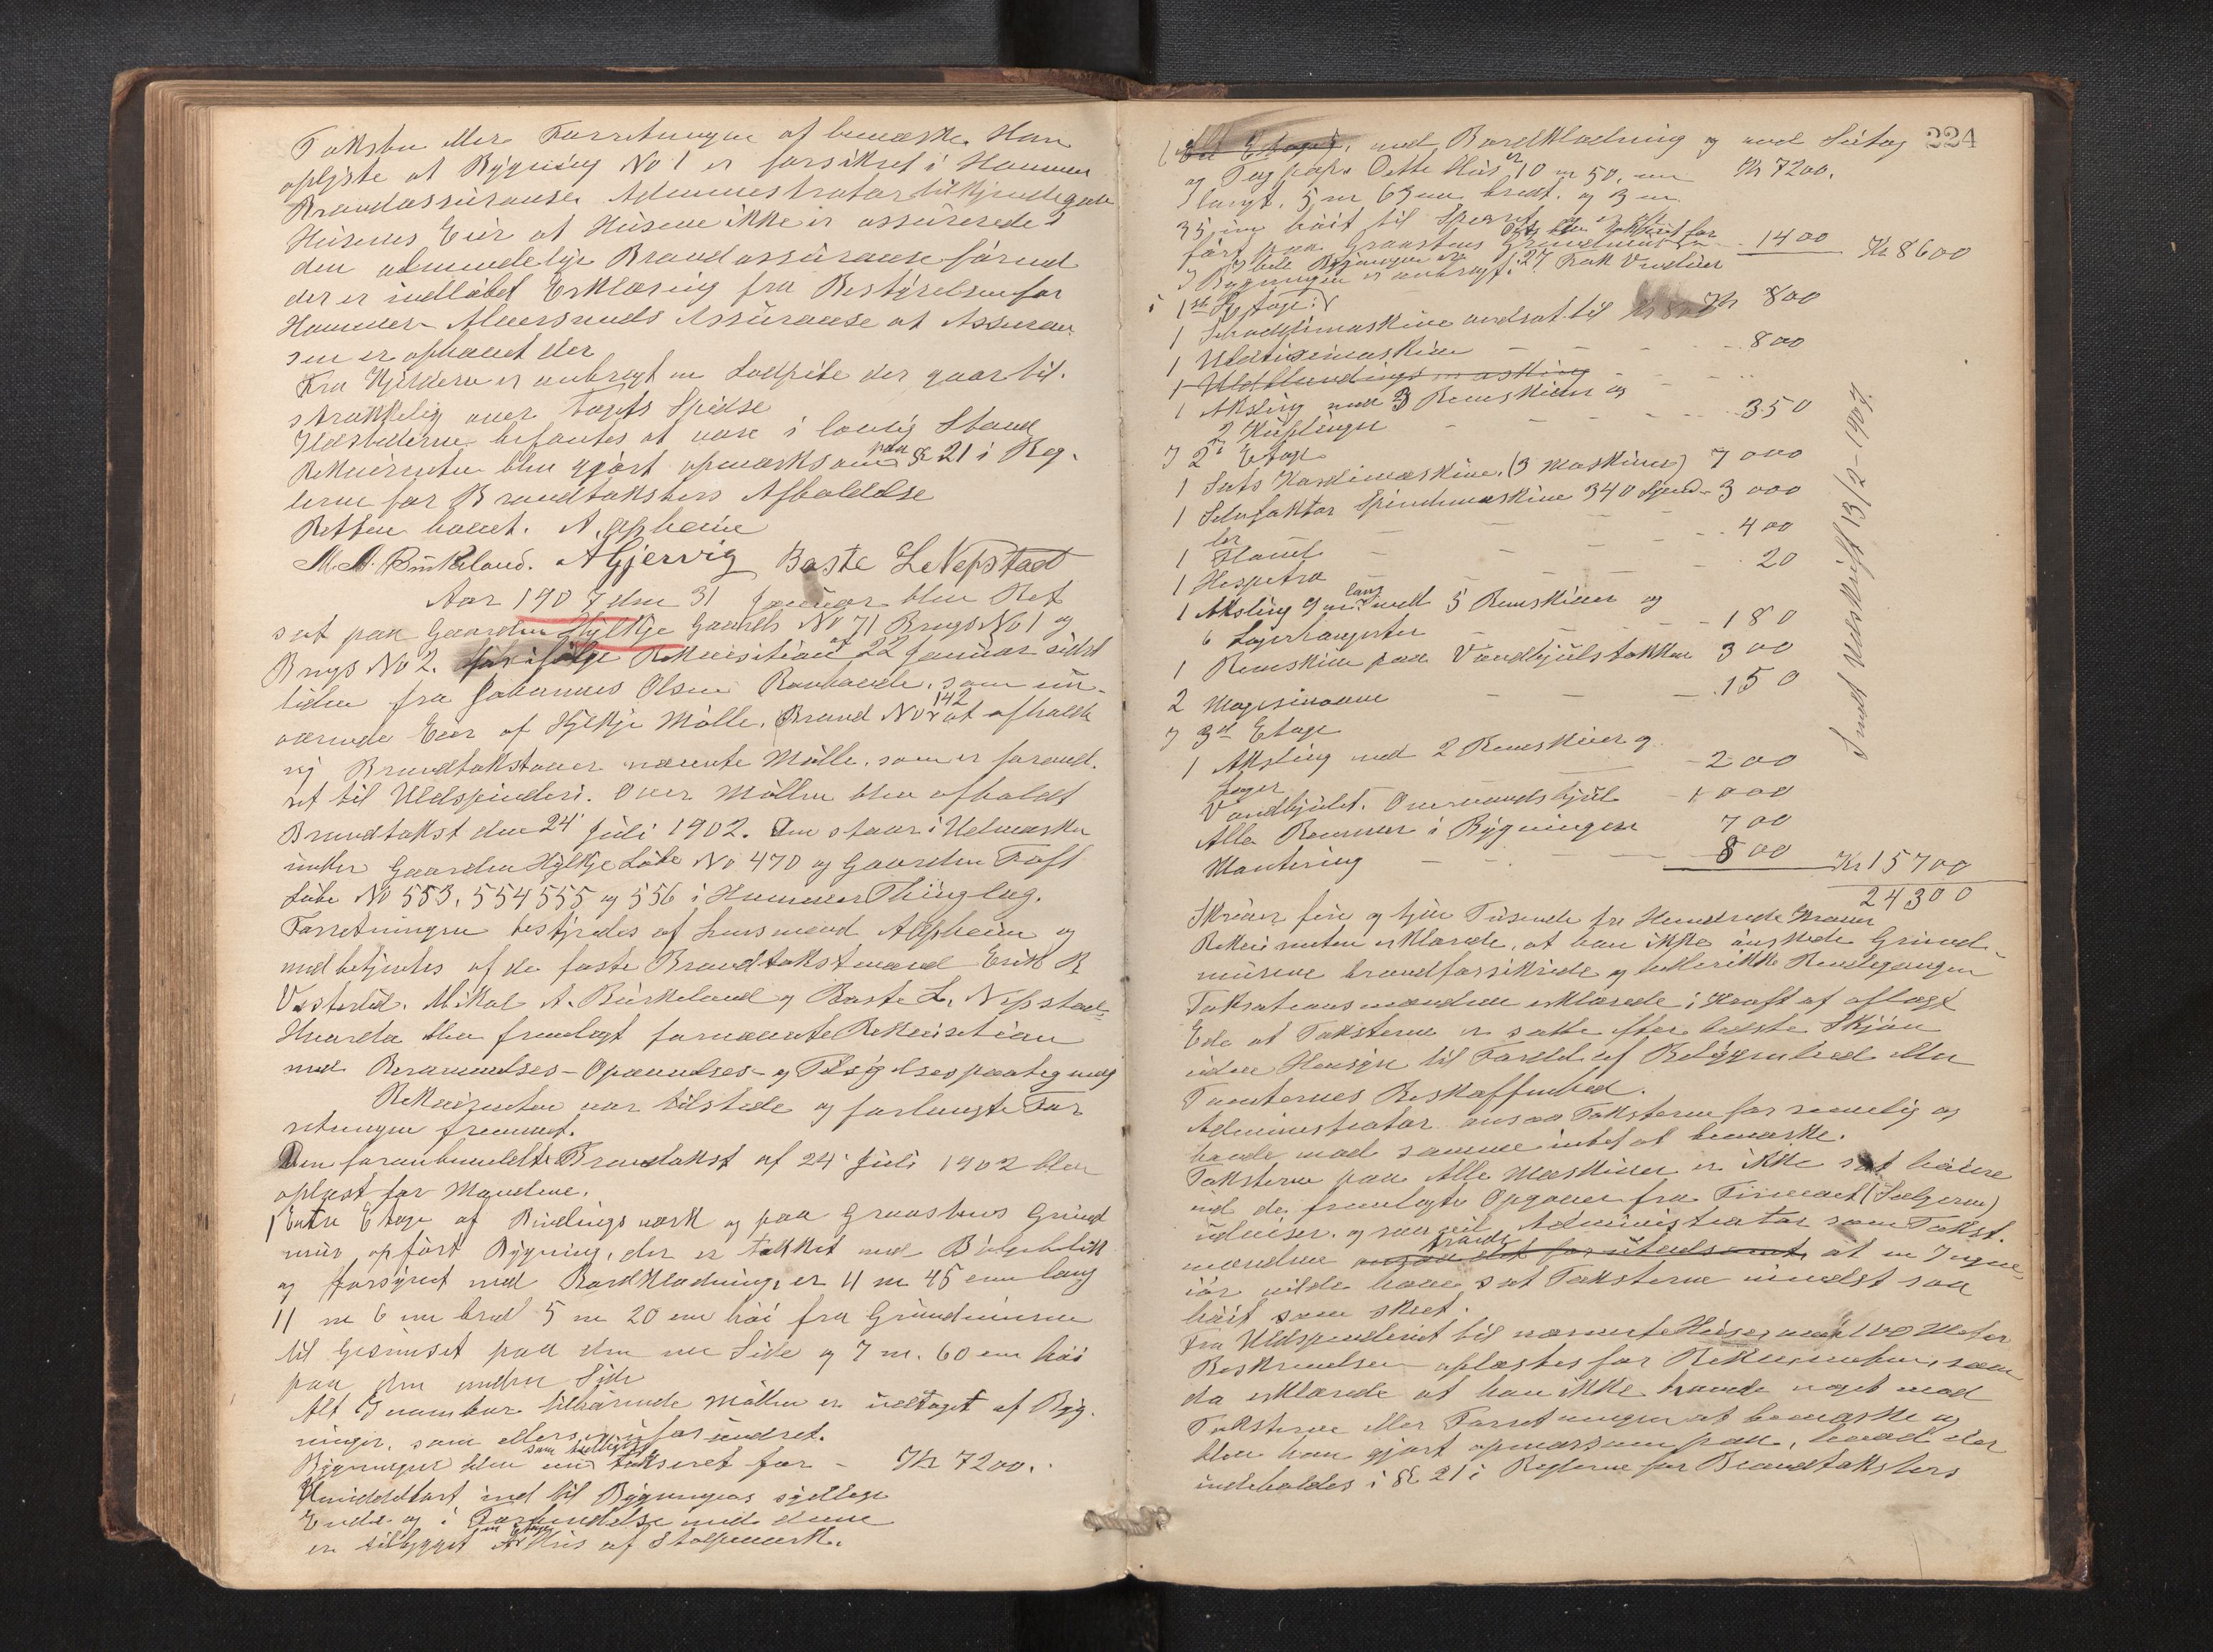 Taksten eller Forretningen at bemærke. Han
oplyste at Bygning No 1 er forsikret i Hammer
Brandassuranse. Administrator tilkjendegav
Husenes Eier at Husene ikke er assurerede i
den almindelige Brandassuranse førend
der er indløbet Erklæring fra Bestyrelsen for
Hammer Assuranse at Assuran-
sen er ophævet der
Fra Kjelderen er anbragt en Lodpibe der gaar til-
strækkelig over Tagets Spidse
Ildstederne befantes at være i lovlig Stand
Rekvirenten blev gjort opmærksom paa § 21 i Reg-
lerne for Brandtaksters Afholdelse
Retten hævet. A. Apheim
M. A. Birkeland. A Gjervig Baste L Nepstad
Aar 1907 den 31 Januar blev Ret
sat paa Gaarden Hylkje Gaards No 71 Brugs No 1 og
Brugs No 2. ifølge Rekvisition af 22 Januar sidst-
leden fra Johannes Olsen, som nu-
værende Eier af Hylkje Mølle. Brand No 142 at afholde
ny Brandtakst over nævnte Mølle, som er forand-
ret til Uldspinderi. Over Møllen blev afholdt
Brandtakst den 24 Juli 1902. Den staar i Udmarken
under Gaarden Hylkje Løbe No 470 og Gaarden Toft
Løbe No 553, 554 555 og 556 i Hammer Thinglag.
Forretningen bestyredes af Lensmand Apheim og
med betjentes af de faste Brandtakstmænd Erik R
Vesterlid. Mikal A. Birkeland og Baste L. Nepstad
Hvorda blev fremlagt fornævnte Rekvisition
med Berammelses- Opnævnelses- og Tilsigelsespaategning
Rekvirenten var tilstede og forlangte For
retningen fremmet.
Den foranbemeldte Brandtakst af 24 Juli 1902 blev
oplæst for Mændene.
1 En to Etage af Bindingsværk og paa Graastens Grund
mur opført Bygning, der er tækket med Bølgeblik
og forsynet med Bordklædning, er 11 m 45 cm lang
11 m 6 cm bred 5 m 20 cm høi fra Grundmuren
til Gesimset paa den ene Side og 7 m. 60 cm høi
paa den anden Side
Alt Inventar tilhørende Møllen er udtaget af Byg-
ningen, som ellers er uforandret.
Bygningen blev som tidligere takseret for - Kr 7200.
Umiddelbart ind til Bygningens sydlige
Ende og i Forbindelse med denne
er tilbygget en Etages Hus af Stolpeverk.
224
En Etages, med Bordklædning og med Sutag
og Tagpap. Dette Hus er 10 m 50. cm Kr 7200.
langt. 5 m 63 cm bredt. og 3 m
35 cm høit til Sperret og er op-
ført paa Graastens Grundmur Det blev takseret for 1400 Kr 8600
I hele Bygningen er
I Bygningen er anbragt: 27 Fak Vinduer
i 1ste Etage:
1 Schoddimaskine ansat til Kr 800
1 Uldrivemaskine - - - 800
1 Uldblandings maskine
1 Aksling med 3 Remskiver og
2 Kuplinger - - - 350
I 2de Etage
1 Sats Kardemaskine. (3 Maskiner) 7000
1 Selvfaktor Spindemaskine 340 Spind- 3000
ler - - - 400
1 Flament - - - 20
1 Hespetræ
1 Aksling 9 m. lang med 5 Remskiver og
6 Lagerhangester - - 180
1 Remskive paa Vandhjulstokken 300
2 Magesinovne - - - 150
I 3de Etage
1 Aksling med 2 Remskiver og
Lager - 200
Vandhjulet. Overvandshjul - 1000
Alle Remmer i Bygningen 700
Montering - - - 800 Kr 15700
24300
Skriver fire og tyve Tusende tre Hundrede Kroner
Rekvirenten erklærede, at han ikke ønskede Grund-
murene brandforsikrede og hellerikke Rendegangen
Taksationsmændene erklærede i Kraft af aflagt
Ede at Taksterne er satte efter bedste Skjøn
uden Hensyn til Fordel af Beliggenhed eller
Tomternes Beskaffenhed.
Administrator ansaa Taksterne for rimelig og
havde mod samme intet at bemærke.
Taksterne paa Alle Maskiner er ikke sat høiere
end de fremlagte Opgaver fra Firmaet (Sælgeren)
udviser. og saavel Administrator som Takst-
mændene troede at en Ingeni-
iør vilde have sat Taksterne mindst saa
høit som skeet.
Fra Uldspinderiet til nærmeste Huse er omtr. 100 Meter
Beskrivelsen oplæstes for Rekvirenten, som
da erklærede at han ikke havde noget mod
Taksterne eller Forretningen at bemærke og
blev han gjort opmærsom paa, hvad der
indeholdes i § 21 i Reglerne for Brandtaksters
Sendt Udskrift 13/2-1907.